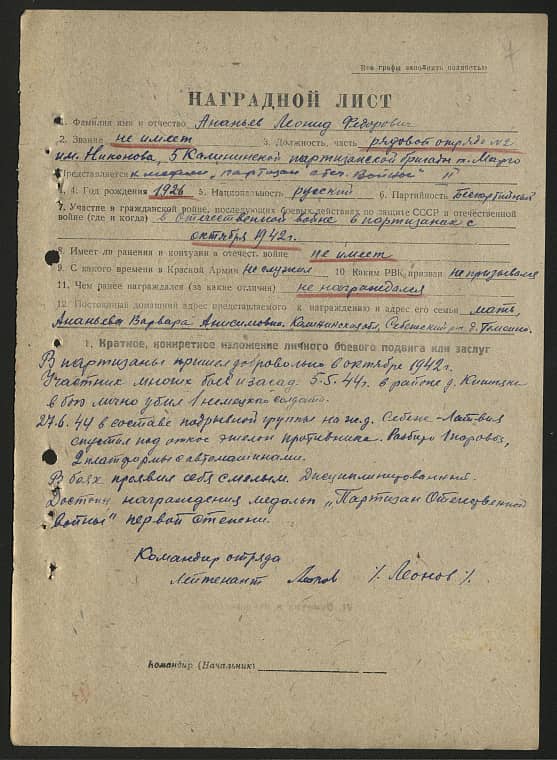 Все графы заполнять полностью
НАГРАДНОЙ ЛИСТ
1. Фамилия имя и отчество Ананьев Леонид Федорович
2. Звание не имеет 3. Должность, часть рядовой отряда №2
им. Никонова, 5 Калининской партизанской бригады т. Марго
Представляется к медали „партизан отеч. войны" II
4. Год рождения 1926 5. Национальность русский 6. Партийность беспартийный
7. Участие в гражданской войне, последующих боевых действиях по защите СССР и отечественной
войне (где и когда) в Отечественной войне в партизанах с
октября 1942 г.
8. Имеет ли ранения и контузии в отечест. войне не имеет
9. С какого времени в Красной Армии не служил 10 Каким РВК призван не призывался
11. Чем ранее награжден (за какие отличия) не награждался
12. Постоянный домашний адрес представляемого к награждению и адрес его семьи мать,
Ананьева Варвара Анисимовна. Калининская обл, Себежский р-н д.
1. Краткое, конкретное изложение личного боевого подвига или заслуг
В партизаны пришел добровольно в октябре 1942 г.
Участник многих боев и засад. 5.5.44 г. в районе д.
в бою лично убил 1 немецкого солдата.
27.6.44 в составе подрывной группы на ж.д. Себеж-Латвия
спустил под откос эшелон противника. Разбиро 1 паровоз,
2 платформы с автомашинами.
В боях проявил себя смелым. Дисциплинированный.
Достоин награждения медалью „Партизан Отечественной
войны" первой степени.
Командир отряда
Лейтенант Леонов /Леонов/.
Командир (Начальник)